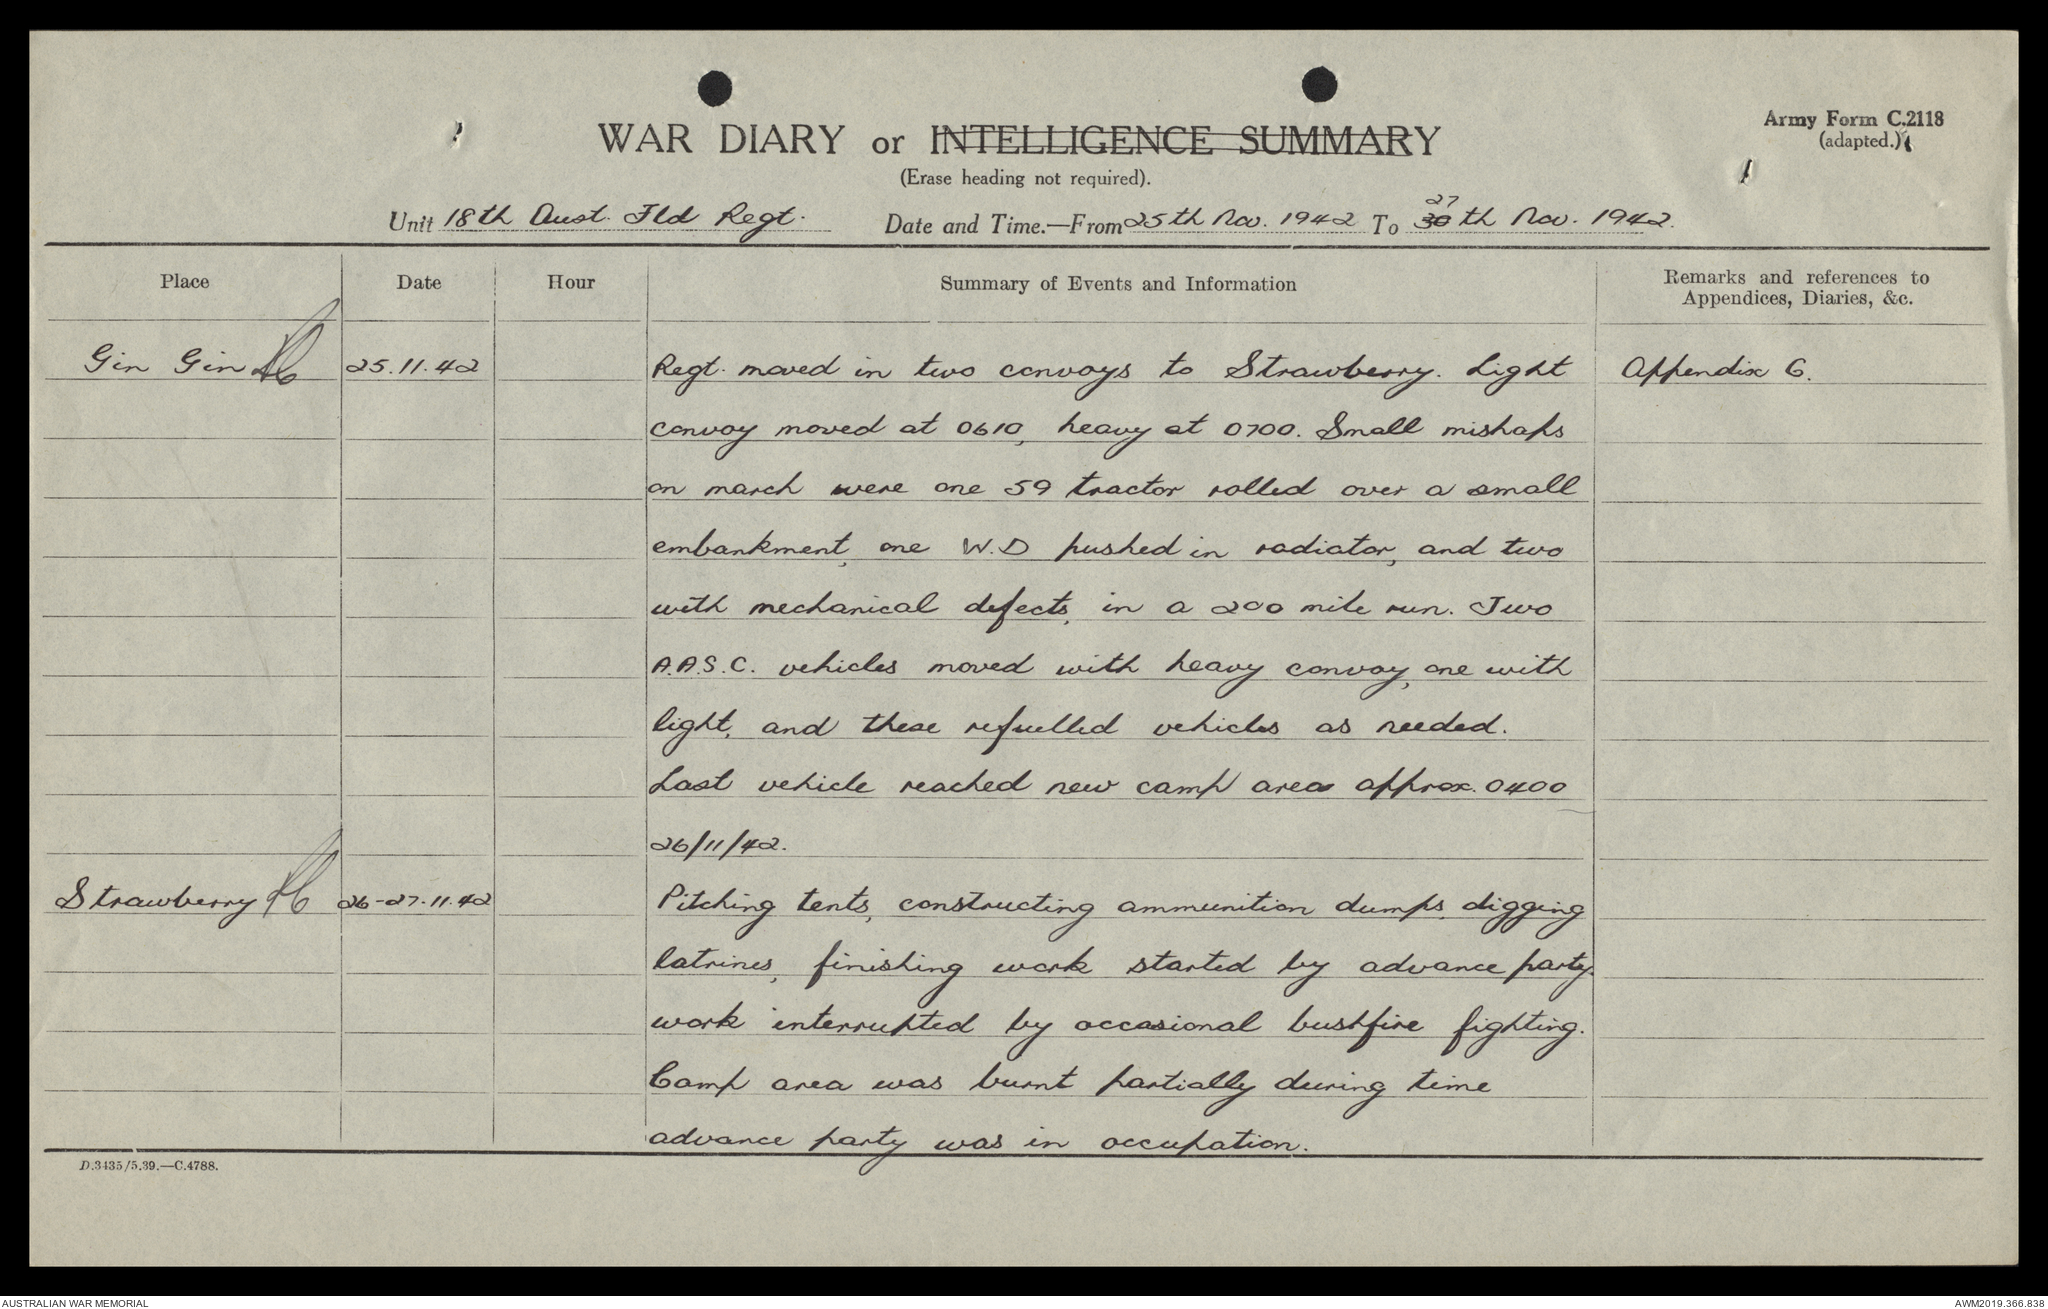 Army Form C.2118
(adapted.)
WAR DIARY or INTELLIGENCE SUMMARY
(Erase heading not required).
Unit 18th Aust. Fld Regt. Date and Time.—From 25th Nov. 1942 To 30 27th Nov. 1942.
Place Date Hour Summary of Events and Information Remarks and references to Appendices, Diaries, &c.
Gin Gin 25.11.42 Regt. moved in two convoys to Strawberry. Light Appendix 6.
convoy moved at 0610, heavy at 0700. Small mishaps
on march were one 59 tractor rolled over a small
embankment, one W.D pushed in radiator, and two
with mechanical defects, in a 200 mile run. Two
A.A.S.C. vehicles moved with heavy convoy, one with
light, and these refuelled vehicles as needed.
Last vehicle reached new camp area approx. 0400
26/11/42.
Strawberry 26-27.11.42 Pitching tents, constructing ammunition dumps, digging
latrines, finishing work started by advance party.
work interrupted by occasional bushfire fighting.
Camp area was burnt partially during time
advance party was in occupation.
D.3435/5.39.—C.4788.
AUSTRALIAN WAR MEMORIAL AWM2019.366.838